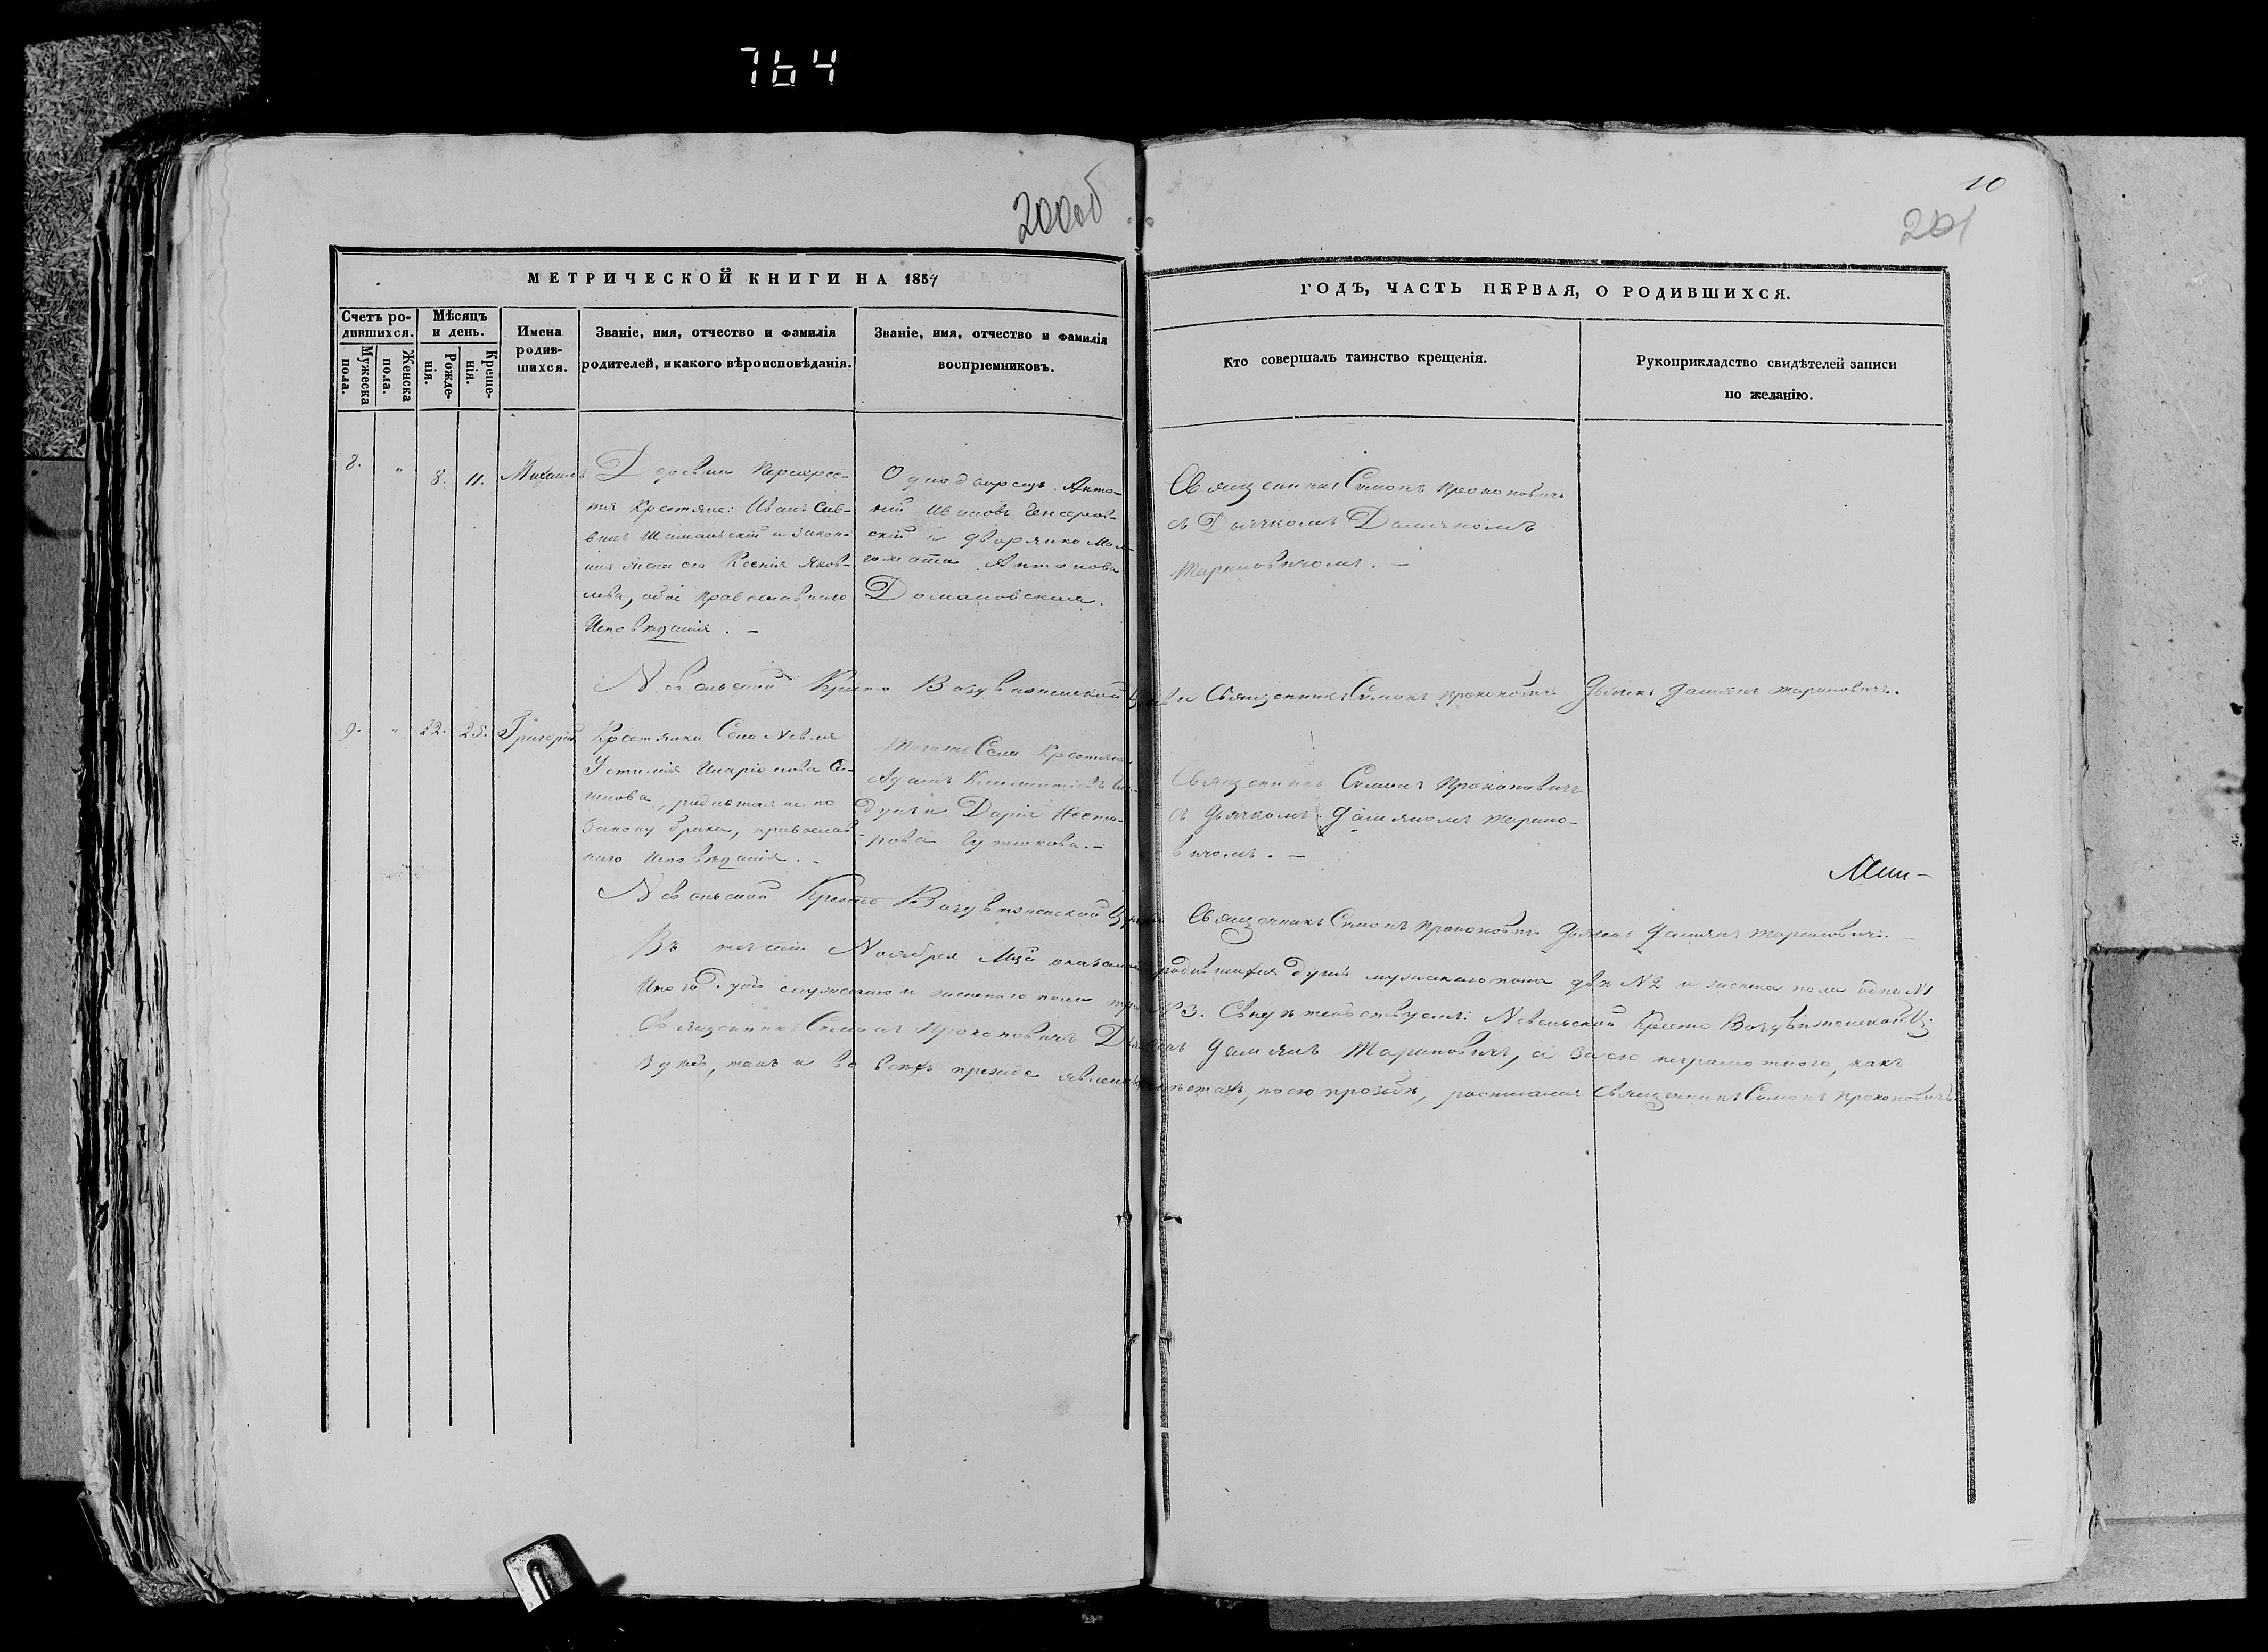 764
200об
10
201
МЕТРИЧЕСКОЙ КНИГИ НА 1857
ГОДЪ, ЧАСТЬ ПЕРВАЯ, О РОДИВШИХСЯ.
Счетъ ро-
дившихся.
Мужеска
пола.
Женска
пола.
Мѣсяцъ
и день.
Рожде-
нія.
Креще-
нія.
Имена
родив-
шихся.
Званіе, имя, отчество и фамилія
родителей, и какого вѣроисповѣданія.
Званіе, имя, отчество и фамилія
воспріемниковъ.
Кто совершалъ таинство крещенія.
Рукоприкладство свидѣтелей записи
по желанію.
8. " 8. 11. Михаилъ
Крестяне: Иванъ
и закон-
ная жена его Ксенія Яков-
лева, обое православнаго
Исповѣданія. –
Однодворецъ Анто-
ній Ивановъ
скій и дворянка
Антонова
Домановская.
Священникъ Симонъ Прокоповичъ
съ Дьячкомъ
Мариновичомъ. –
Невельской Кресто Воздвиженской Церкви Священникъ Симонъ Прокоповичъ Дьячекъ Даміянъ Мариновичъ.
9. " 22. 25. Григорій
Крестянка Села Невля
Устинія Иларіонова
родившая не по
закону брака, православ-
наго Исповѣданія. –
Тогожъ Села Крестяне
Адамъ
Дарія Несте-
рова –
Священникъ Симонъ Прокоповичъ
съ Дьячкомъ Даміяномъ Марино-
вичомъ. –
Невельской Кресто Воздвиженской Церкви Священникъ Симонъ Прокоповичъ Дьячекъ Даміянъ Мариновичъ. –
Въ теченіи Ноября Мца родившихся душъ мужескаго пола двѣ №2 и женска пола одна №1
Итого душъ и женскаго пола три №3. Свидѣтельствуемъ: Невельской Кресто Воздвиженской Ц:
Священникъ Симонъ Прокоповичъ Дьячекъ Даміянъ Мариновичъ, а за его неграмотного, какъ
здѣсь, такъ и во всѣхъ прежде мѣстахъ, по его прозьбѣ, росписался Священникъ Симонъ Прокоповичъ